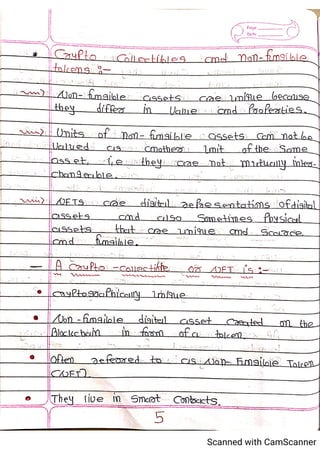 Page
Date
• Crypto Collectibles and Non-fungible
tokens :-
Non-fungible assets are unique because
they differ in Value and Properties.
Units of non-fungible assets can not be
Valued as another Unit of the Same
asset, i.e they are not mutually inter-
changeable.
NFTs are digital representations of digital
assets and also Sometimes Physical
assets that are unique and Scarce.
and fungible.
— A Crypto-collectible or NFT is :-
• cryptographically Unique
• Non-fungible digital asset Created on the
Blockchain in form of a token.
• Often referred to as Non-Fungible Token
(NFT).
• They live in Smart Contracts.
5
Scanned with CamScanner